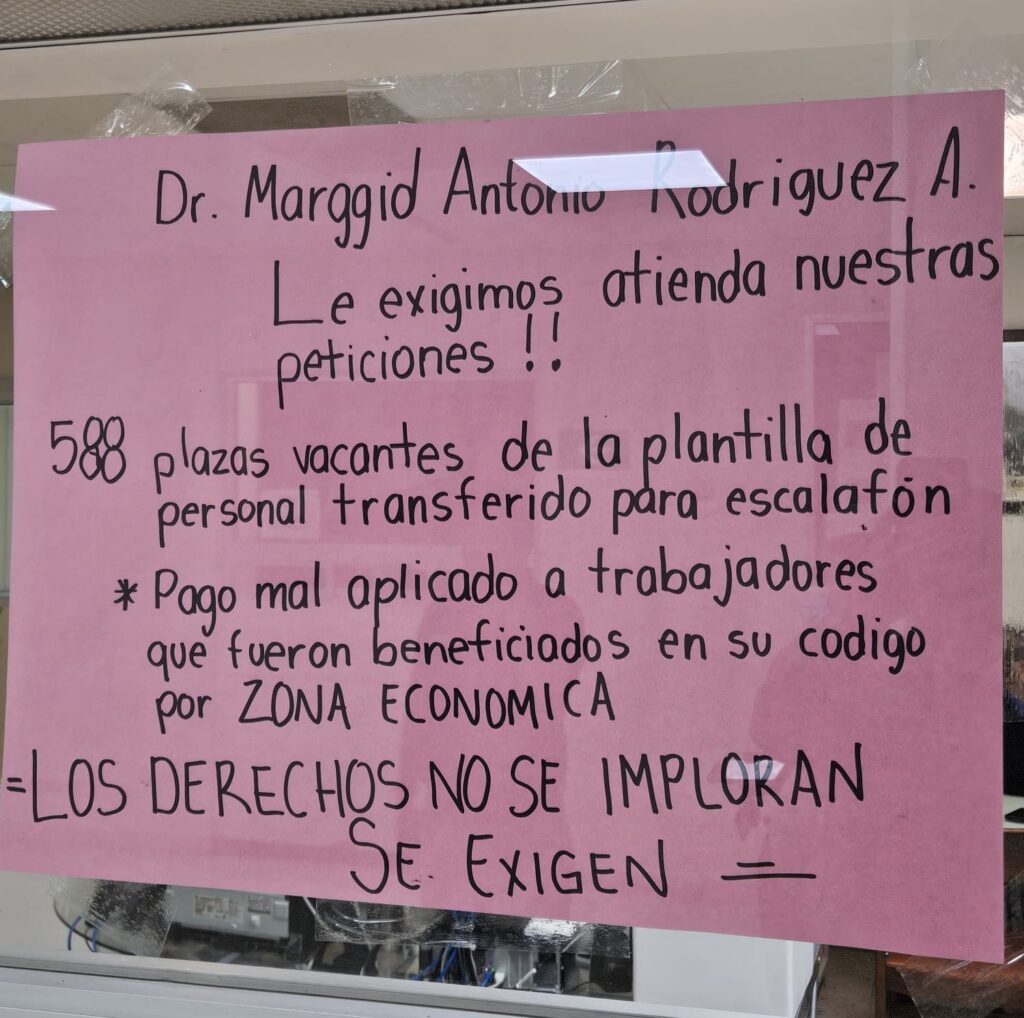 Dr. Marggid Antonio Rodriguez A.
Le exigimos atienda nuestras
peticiones !!
588 plazas vacantes de la plantilla de
personal transferido para escalafón
* Pago mal aplicado a trabajadores
que fueron beneficiados en su codigo
por ZONA ECONOMICA
=LOS DERECHOS NO SE IMPLORAN
SE. EXIGEN =